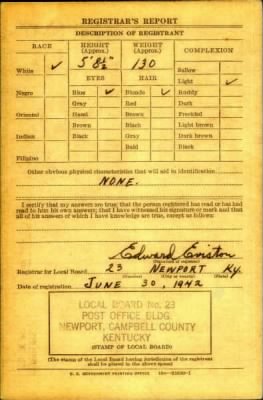 REGISTRAR'S REPORT
DESCRIPTION OF REGISTRANT
RACE HEIGHT (Approx.) WEIGHT (Approx.) COMPLEXION
White ✓ 5' 8½" 130 Sallow
EYES HAIR Light ✓
Negro Blue ✓ Blonde ✓ Ruddy
Gray Red Dark
Oriental Hazel Brown Freckled
Brown Black Light brown
Indian Black Gray Dark brown
Bald Black
Filipino
Other obvious physical characteristics that will aid in identification
NONE.
I certify that my answers are true; that the person registered has read or has had
read to him his own answers; that I have witnessed his signature or mark and that
all of his answers of which I have knowledge are true, except as follows:
Edward Eviston
(Signature of registrar)
Registrar for Local Board 23 NEWPORT Ky.
(Number) (City or county) (State)
Date of registration JUNE 30, 1942
LOCAL BOARD No. 23
POST OFFICE BLDG.
NEWPORT, CAMPBELL COUNTY
KENTUCKY
(STAMP OF LOCAL BOARD)
(The stamp of the Local Board having jurisdiction of the registrant
shall be placed in the above space)
U. S. GOVERNMENT PRINTING OFFICE